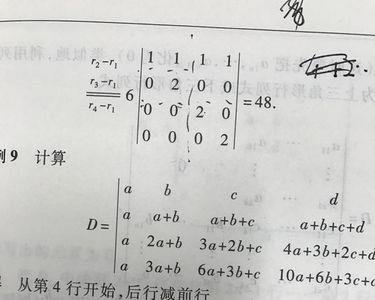 r₂-r₁
r₃-r₁
r₄-r₁
6 | 1 1 1 1 |
| 0 2 0 0 |
| 0 0 2 0 | =48.
| 0 0 0 2 |
例9 计算
| a b c d |
D= | a a+b a+b+c a+b+c+d |
| a 2a+b 3a+2b+c 4a+3b+2c+d |
| a 3a+b 6a+3b+c 10a+6b+3c+d |
从第4行开始,后行减前行